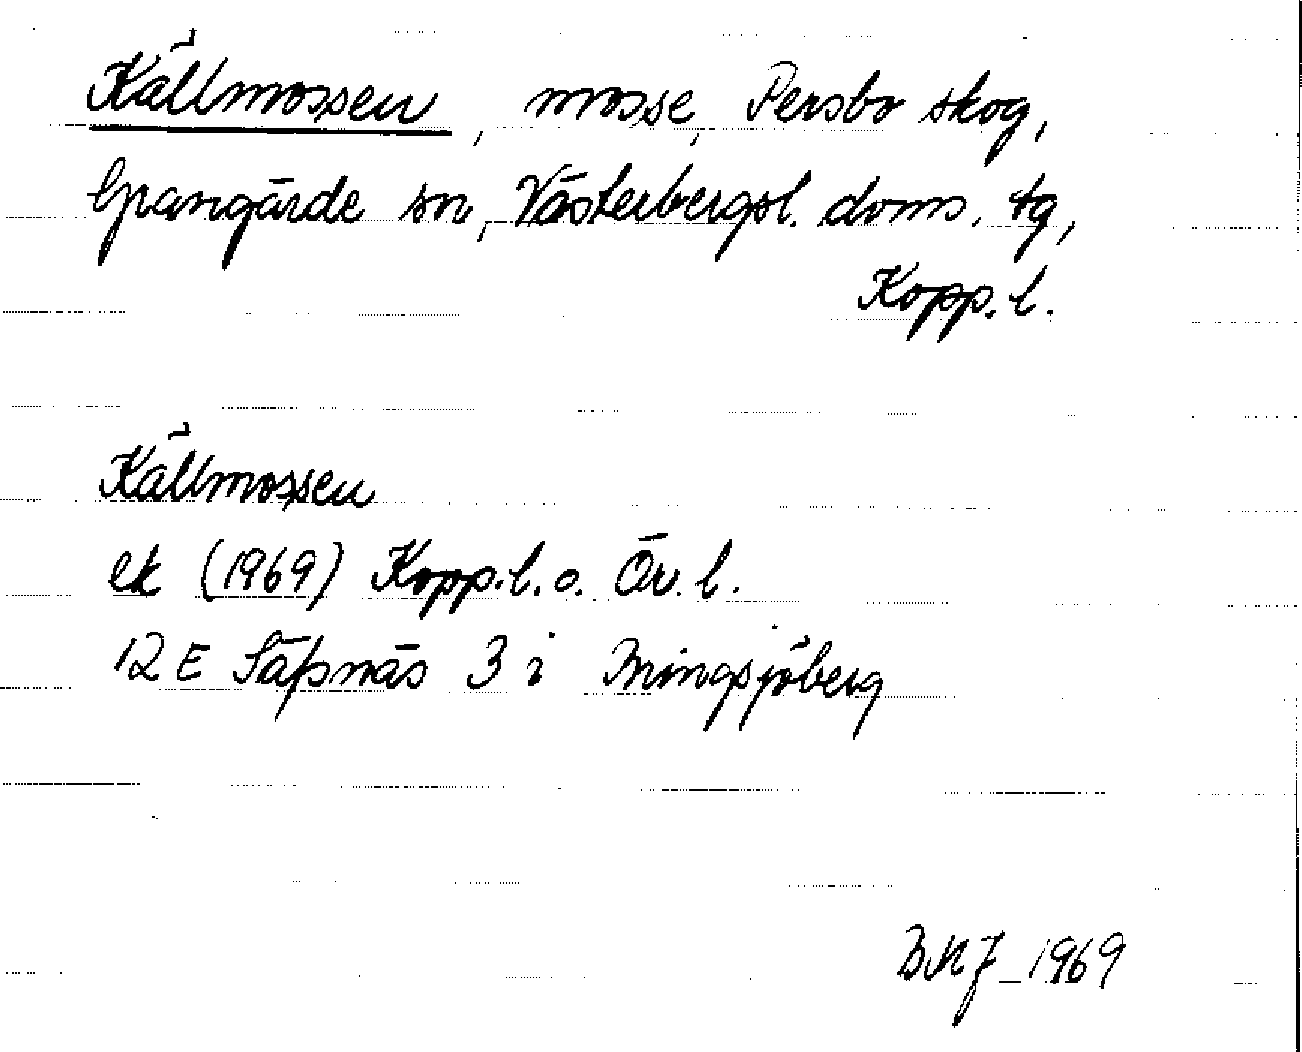 Källmossen, mosse, Persbo skog,
Grangärde sn, Västerbergsl. doms. tg,
Kopp. l.
Källmossen
ek (1969) Kopp. l. o. Öv. l.
12 E Säfsnäs 3 i Bringsjöberg
BMJ 1969